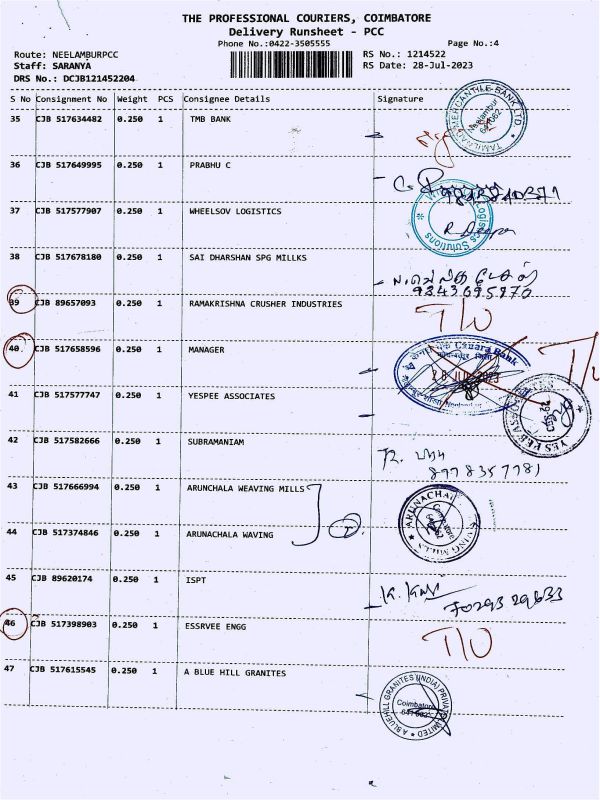 THE PROFESSIONAL COURIERS, COIMBATORE
Delivery Runsheet - PCC
Phone No.:0422-3505555 Page No.:4
Route: NEELAMBURPCC RS No.: 1214522
Staff: SARANYA RS Date: 28-Jul-2023
DRS No.: DCJB121452204
S No Consignment No Weight PCS Consignee Details Signature
35 CJB 517634482 0.250 1 TMB BANK
TAMILNAD MERCANTILE BANK LTD
Neelambur
641062
36 CJB 517649995 0.250 1 PRABHU C
37 CJB 517577907 0.250 1 WHEELSOV LOGISTICS
Logistics Solutions
38 CJB 517678180 0.250 1 SAI DHARSHAN SPG MILLKS
39 CJB 89657093 0.250 1 RAMAKRISHNA CRUSHER INDUSTRIES
T/U
40 CJB 517658596 0.250 1 MANAGER
Canara Bank
28 JUL 2023
T/U
41 CJB 517577747 0.250 1 YESPEE ASSOCIATES
YES PEE ASSOCIATES
42 CJB 517582666 0.250 1 SUBRAMANIAM
8978357781
43 CJB 517666994 0.250 1 ARUNCHALA WEAVING MILLS
44 CJB 517374846 0.250 1 ARUNACHALA WAVING
②
ARUNACHALA WEAVING MILLS
Coimbatore
45 CJB 89620174 0.250 1 ISPT
46 CJB 517398903 0.250 1 ESSRVEE ENGG
T/U
47 CJB 517615545 0.250 1 A BLUE HILL GRANITES
A BLUEHILL GRANITES (INDIA) PRIVATE LIMITED
Coimbatore
641 062